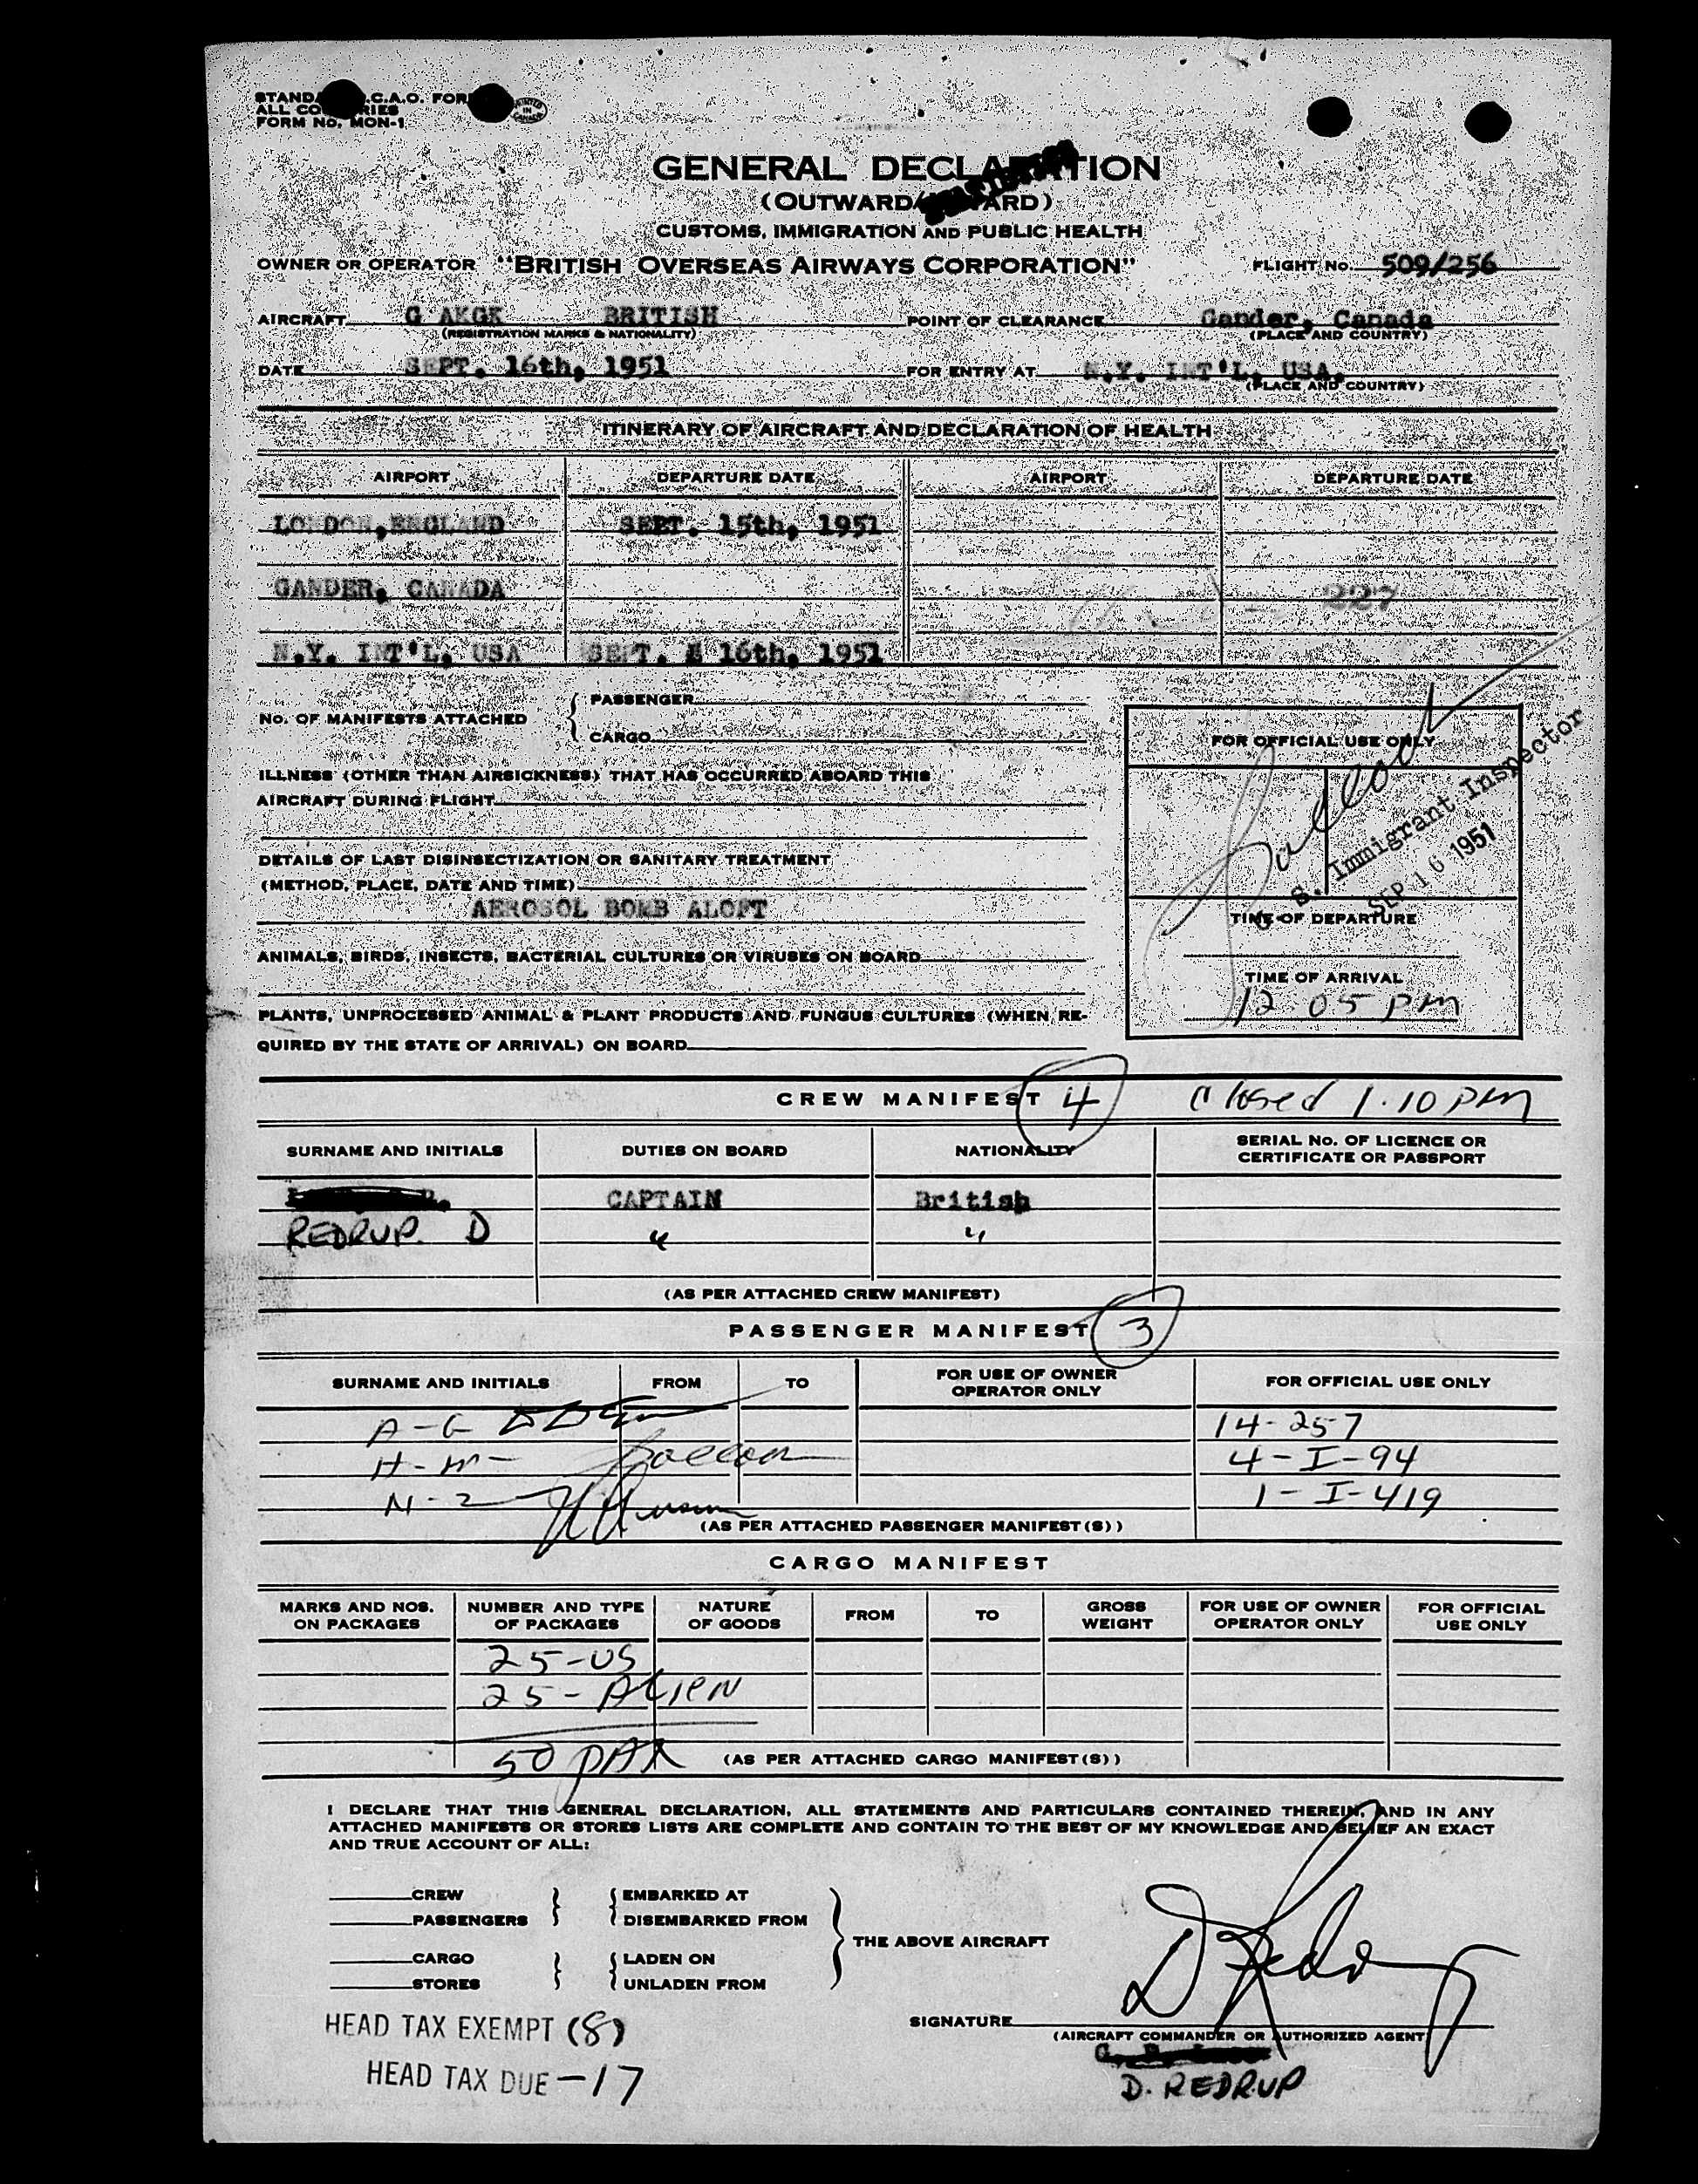 STANDARD I.C.A.O. FORM
ALL COUNTRIES
FORM NO. MON-1
PRINTED IN CANADA
GENERAL DECLARATION
(OUTWARD/
CUSTOMS, IMMIGRATION AND PUBLIC HEALTH
OWNER OR OPERATOR "BRITISH OVERSEAS AIRWAYS CORPORATION" FLIGHT No. 509/256
AIRCRAFT G AKGK BRITISH POINT OF CLEARANCE Gander, Canada
(REGISTRATION MARKS & NATIONALITY) (PLACE AND COUNTRY)
DATE SEPT. 16th, 1951 FOR ENTRY AT N.Y. INT'L, USA.
(PLACE AND COUNTRY)
ITINERARY OF AIRCRAFT AND DECLARATION OF HEALTH
AIRPORT DEPARTURE DATE AIRPORT DEPARTURE DATE
LONDON, ENGLAND SEPT. 15th, 1951
GANDER, CANADA 227
N.Y. INT'L, USA SEPT. 16th, 1951
No. OF MANIFESTS ATTACHED
PASSENGER
CARGO
FOR OFFICIAL USE ONLY
ILLNESS (OTHER THAN AIRSICKNESS) THAT HAS OCCURRED ABOARD THIS
AIRCRAFT DURING FLIGHT
U. S. Immigrant Inspector
SEP 16 1951
DETAILS OF LAST DISINSECTIZATION OR SANITARY TREATMENT
(METHOD, PLACE, DATE AND TIME)
AEROSOL BOMB ALOFT
TIME OF DEPARTURE
ANIMALS, BIRDS, INSECTS, BACTERIAL CULTURES OR VIRUSES ON BOARD
TIME OF ARRIVAL
12.05 PM
PLANTS, UNPROCESSED ANIMAL & PLANT PRODUCTS AND FUNGUS CULTURES (WHEN RE-
QUIRED BY THE STATE OF ARRIVAL) ON BOARD
CREW MANIFEST 4 Closed 1.10 PM
SURNAME AND INITIALS DUTIES ON BOARD NATIONALITY SERIAL No. OF LICENCE OR
CERTIFICATE OR PASSPORT
CAPTAIN British
REDRUP. D " "
(AS PER ATTACHED CREW MANIFEST)
PASSENGER MANIFEST 3
SURNAME AND INITIALS FROM TO FOR USE OF OWNER
OPERATOR ONLY FOR OFFICIAL USE ONLY
A-G 14-257
H-M- 4-I-94
N-Z 1-I-419
(AS PER ATTACHED PASSENGER MANIFEST(S))
CARGO MANIFEST
MARKS AND NOS.
ON PACKAGES NUMBER AND TYPE
OF PACKAGES NATURE
OF GOODS FROM TO GROSS
WEIGHT FOR USE OF OWNER
OPERATOR ONLY FOR OFFICIAL
USE ONLY
25-US
25-ALIEN
50 PAX (AS PER ATTACHED CARGO MANIFEST(S))
I DECLARE THAT THIS GENERAL DECLARATION, ALL STATEMENTS AND PARTICULARS CONTAINED THEREIN, AND IN ANY
ATTACHED MANIFESTS OR STORES LISTS ARE COMPLETE AND CONTAIN TO THE BEST OF MY KNOWLEDGE AND BELIEF AN EXACT
AND TRUE ACCOUNT OF ALL:
CREW EMBARKED AT
PASSENGERS DISEMBARKED FROM
THE ABOVE AIRCRAFT
CARGO LADEN ON
STORES UNLADEN FROM
HEAD TAX EXEMPT (8)
SIGNATURE D Redrup
(AIRCRAFT COMMANDER OR AUTHORIZED AGENT)
HEAD TAX DUE -17
D. REDRUP